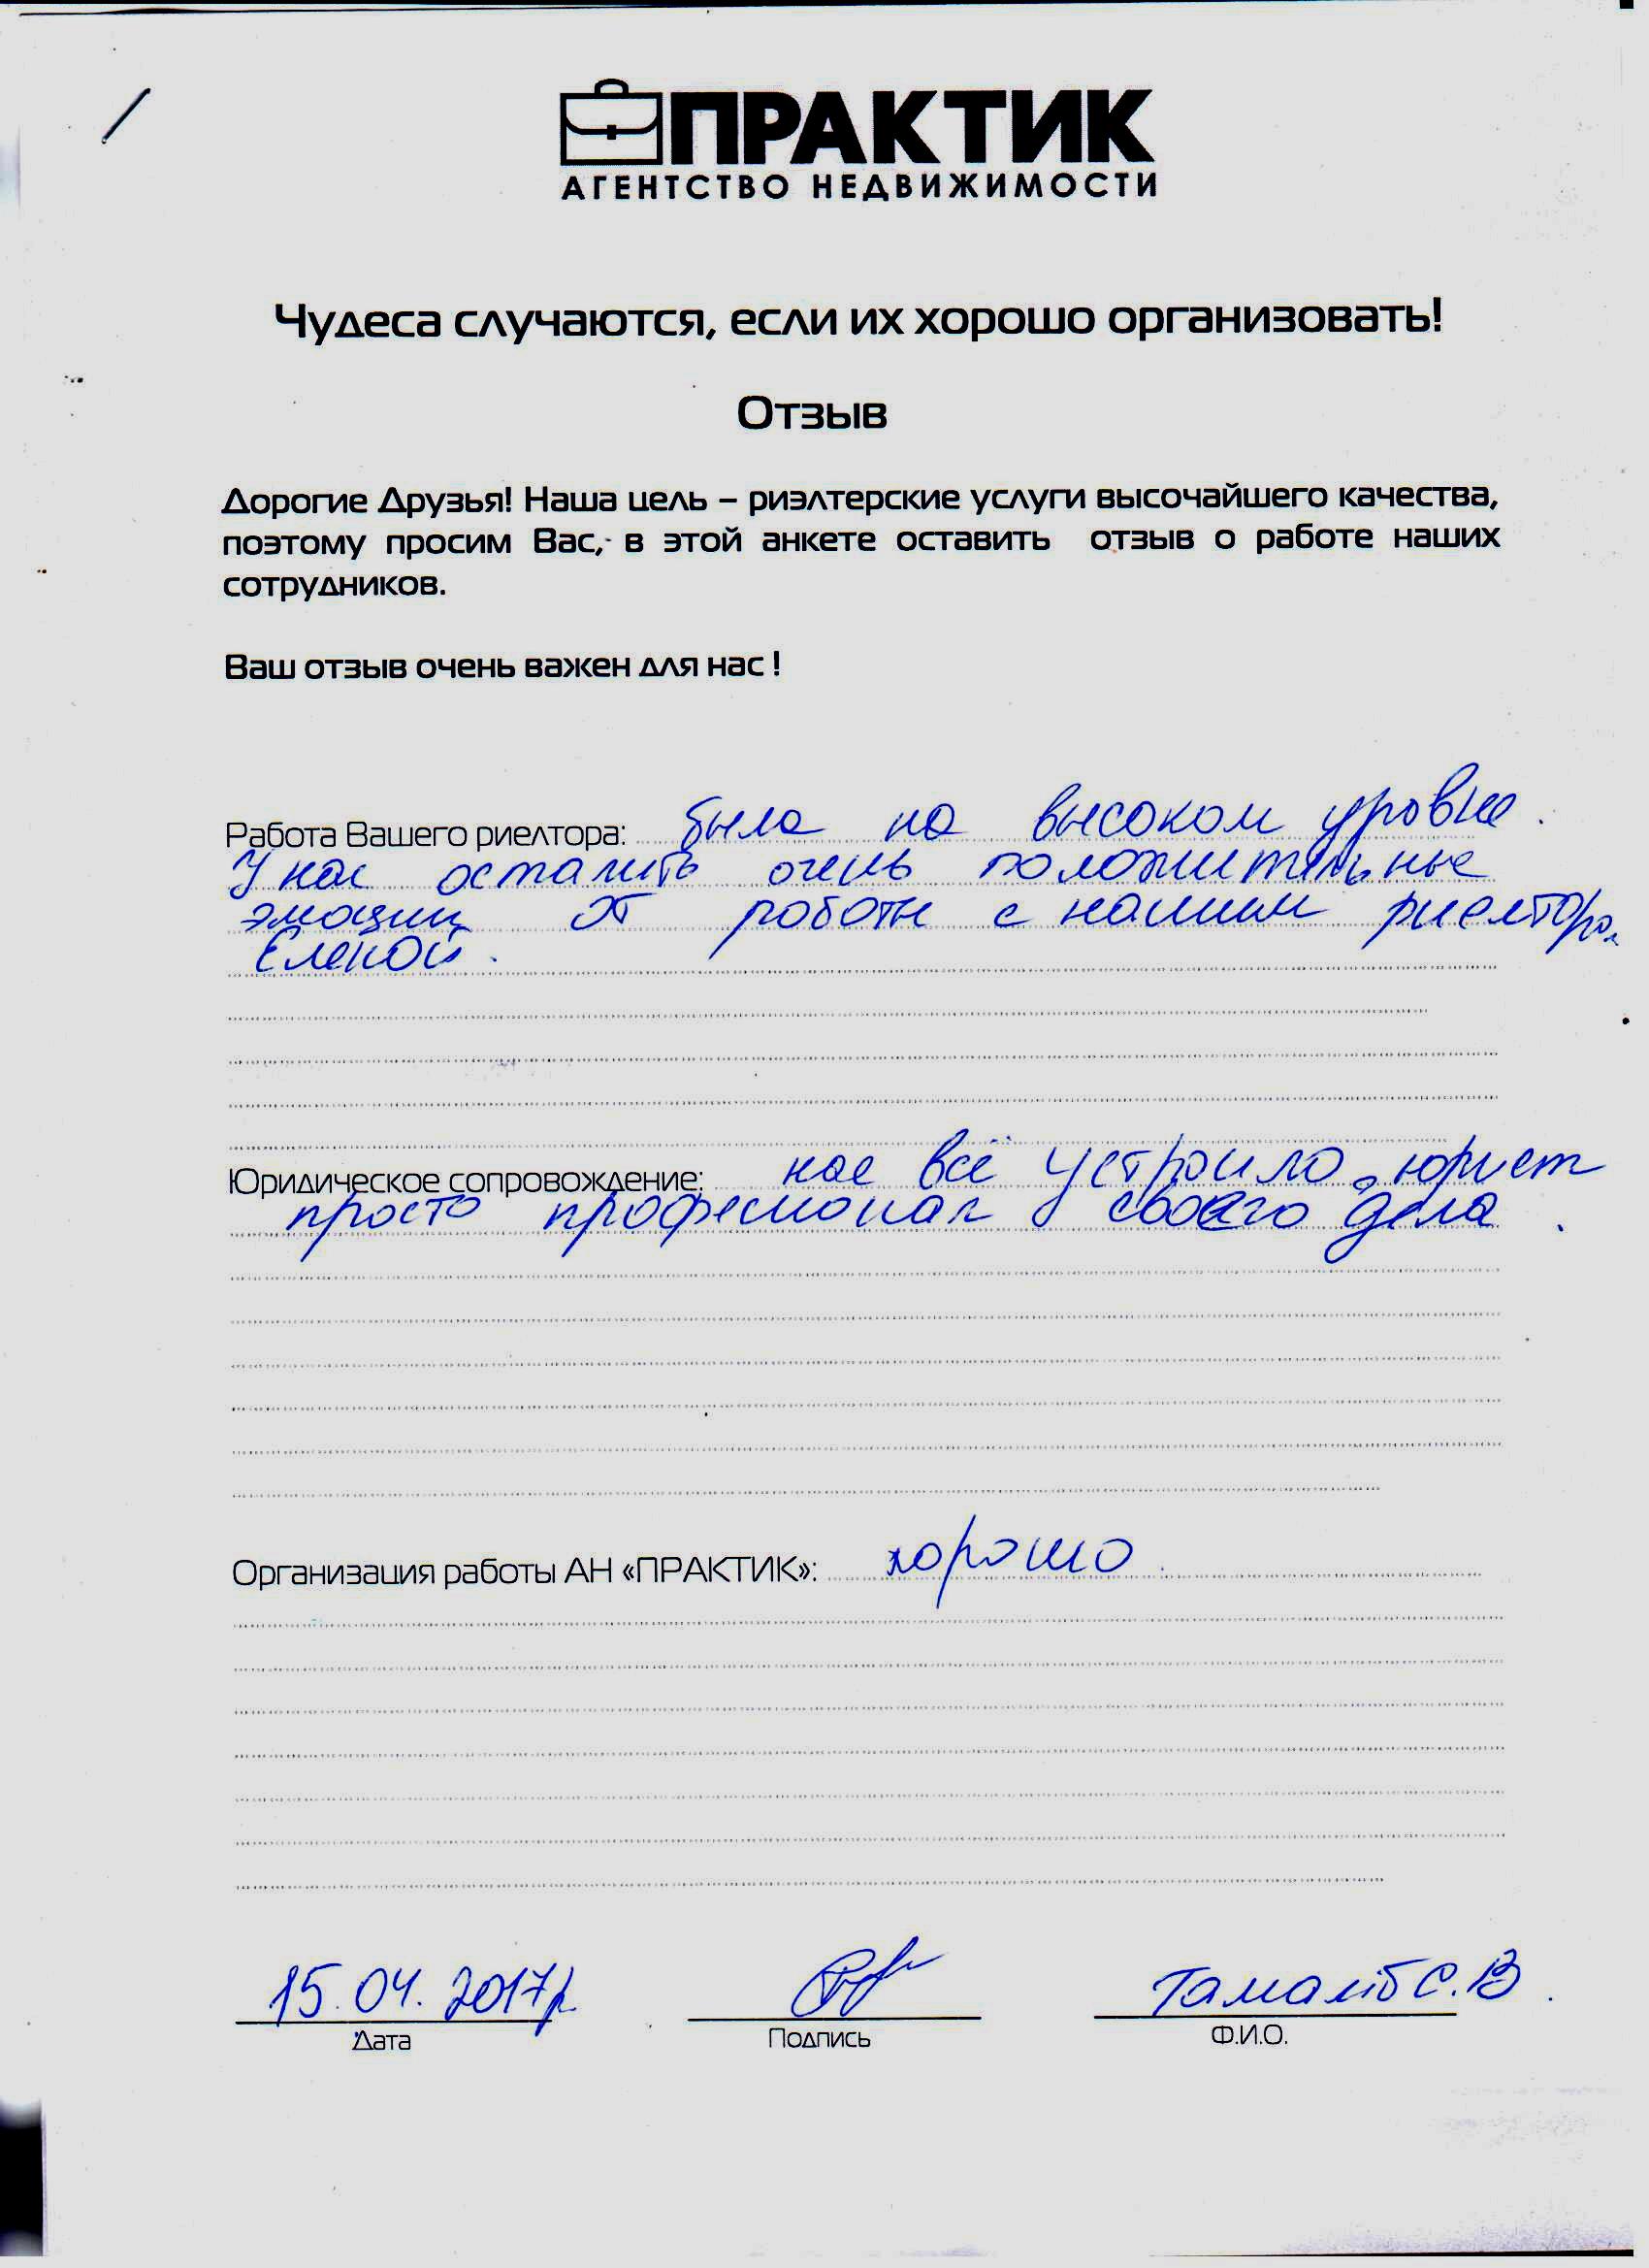 ПРАКТИК
АГЕНТСТВО НЕДВИЖИМОСТИ
Чудеса случаются, если их хорошо организовать!
Отзыв
Дорогие Друзья! Наша цель – риэлтерские услуги высочайшего качества,
поэтому просим Вас, в этой анкете оставить отзыв о работе наших
сотрудников.
Ваш отзыв очень важен для нас !
Работа Вашего риелтора: была на высоком уровне.
У нас очень положительные
эмоции от работы с нашим
Еленой.
Юридическое сопровождение: нас всё устроило, юрист
просто професионал своего дела.
Организация работы АН «ПРАКТИК»: хорошо.
15.04.2017г.
С.В.
Дата
Подпись
Ф.И.О.